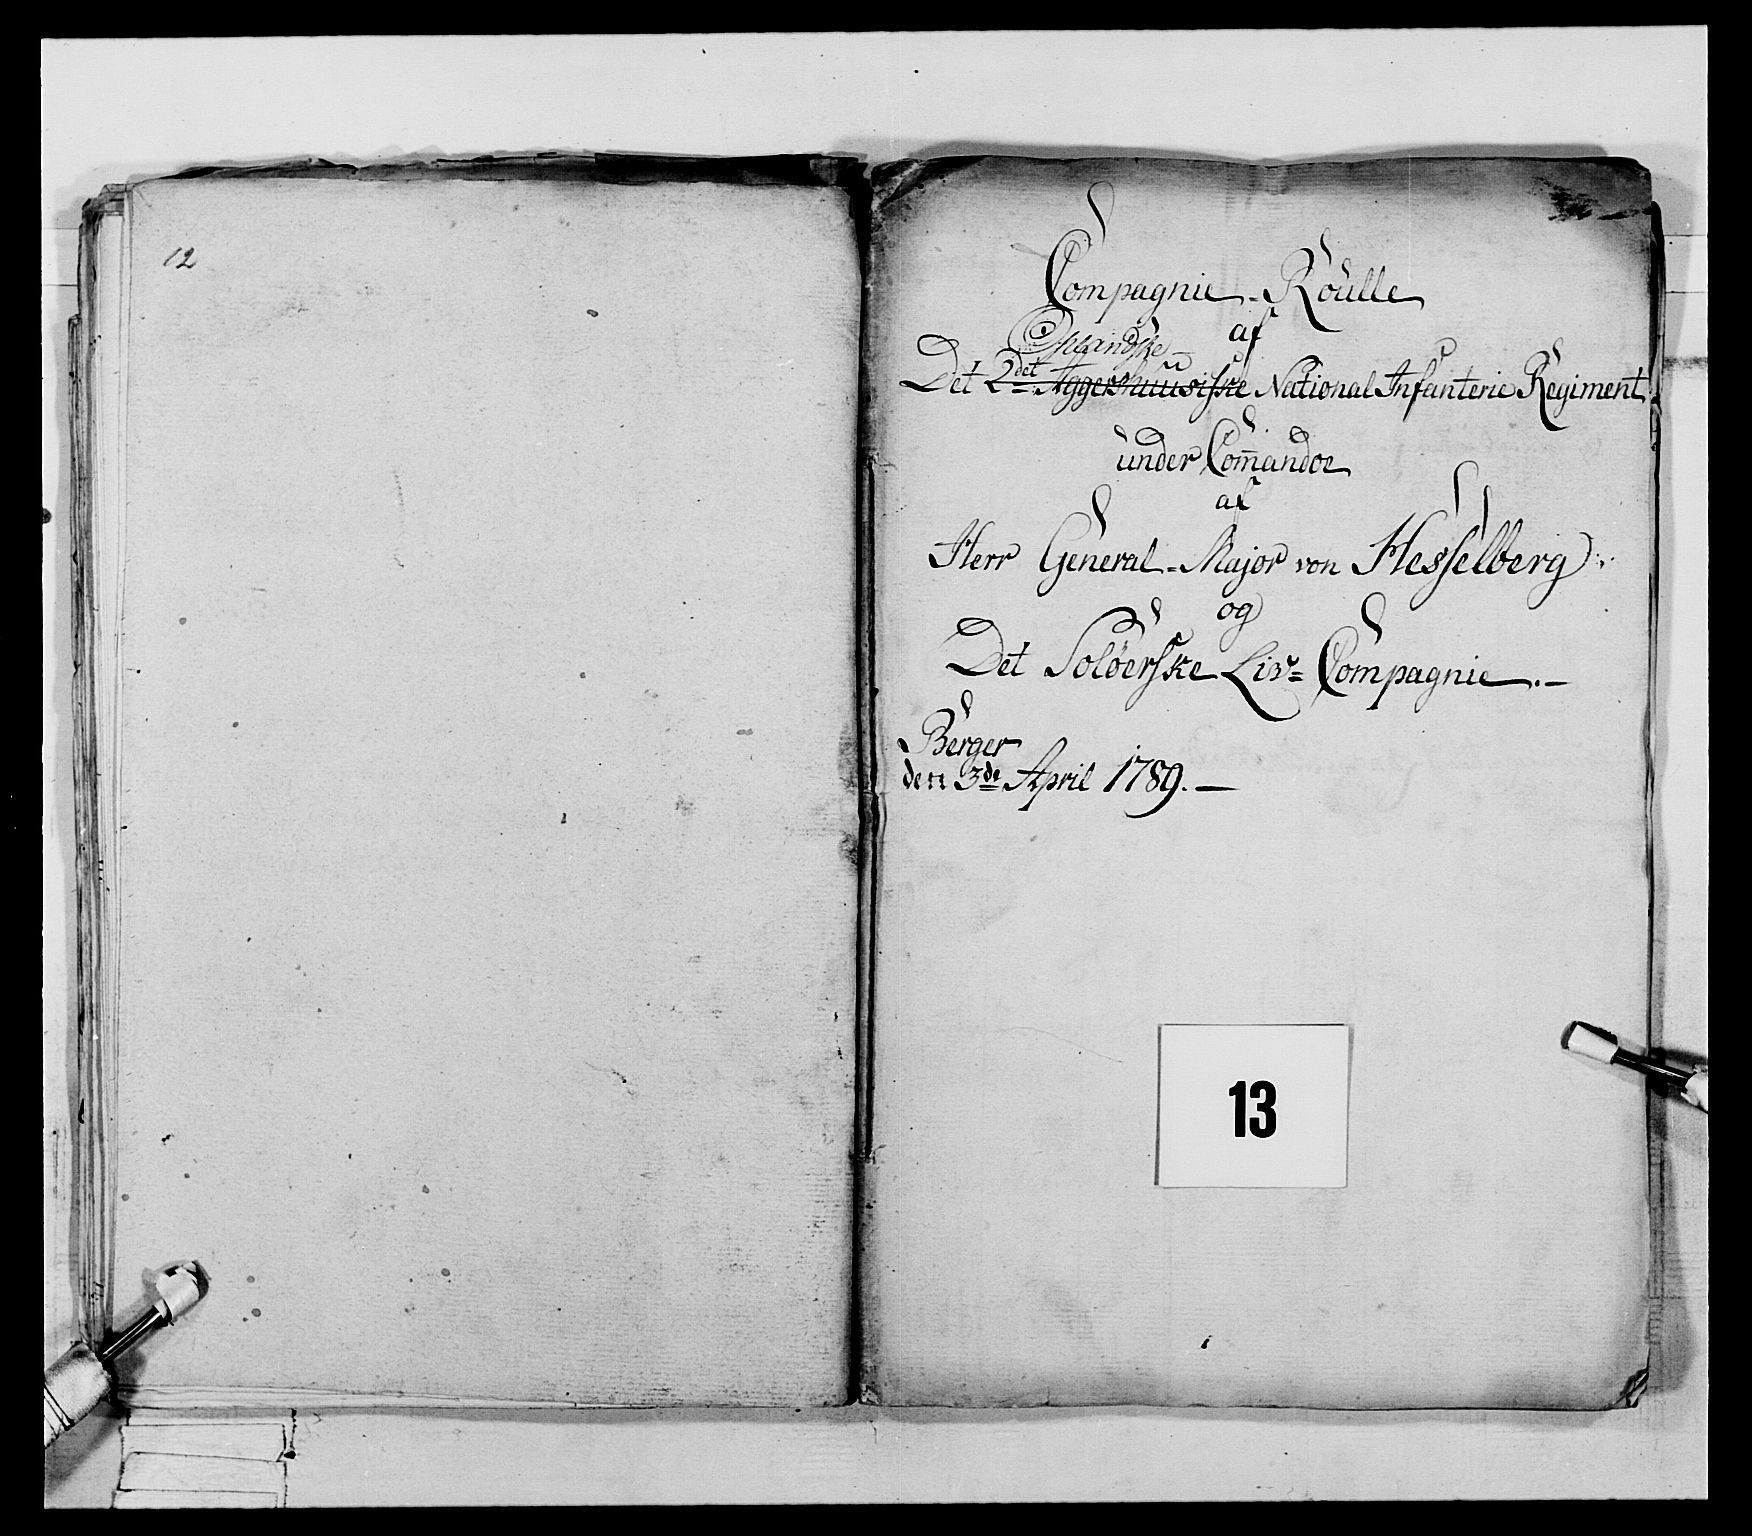 12
Compagnie-Roulle
af
Oplandske
Det 2det Aggershuusiske National Infanterie Regiment
under Com̄andoe
af
Herr General-Major von Hesselberg
og
Det Solöerske Liv-Compagnie.
Berger
den 3de April 1789.
13